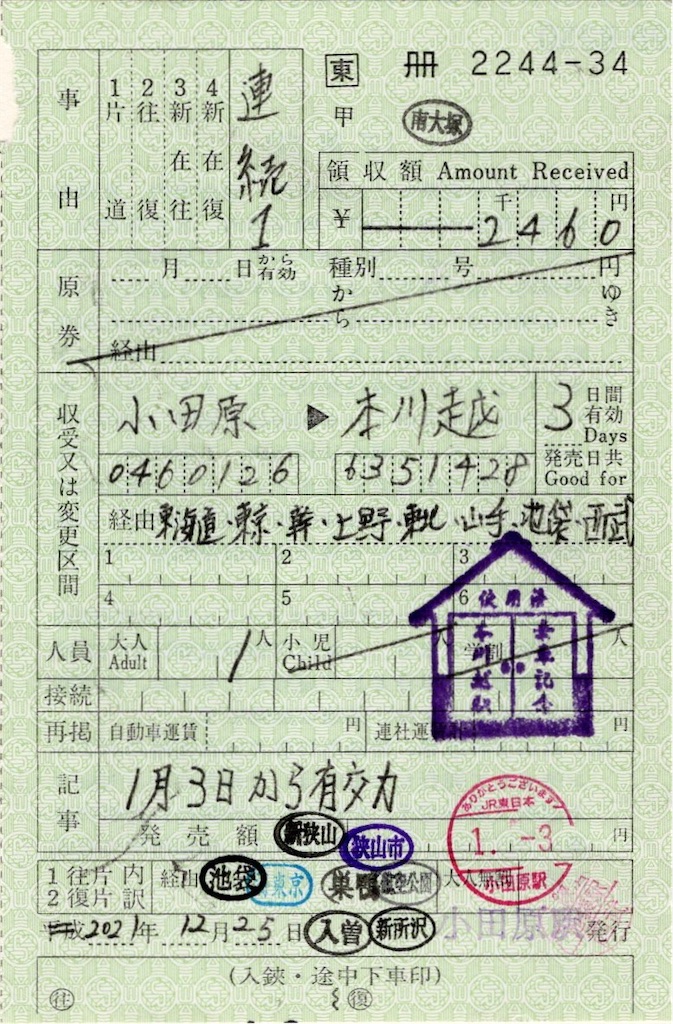 東 冊 2244-34
甲 南大塚
事由
1片道
2往復
3新在往
4新在復
連続1
領収額 Amount Received
¥ 千 2460 円
原券
月 日から有効 種別 号 円
から ゆき
経由
収受又は変更区間
小田原 ▶ 本川越
3 日間有効 Days
発売日共 Good for
0460126 6351428
経由 東海道・東京・幹・上野・東北・山手・池袋・西武
1 2 3
4 5 6
使用済
本川越駅
乗車記念
人員 大人 Adult 1人 小児 Child 人 学割 人
接続
再掲 自動車運賃 円 連社運 円
記事 1月3日から有効
発売額 円
新狭山 狭山市
ありがとうございます
JR東日本
1.-3
小田原駅
1往片 内訳 経由 大人
2復片
池袋 東京 巣鴨 航空公園
平成 2021年 12月25日 小田原駅 発行
入曽 新所沢
(入鋏・途中下車印)
往 復